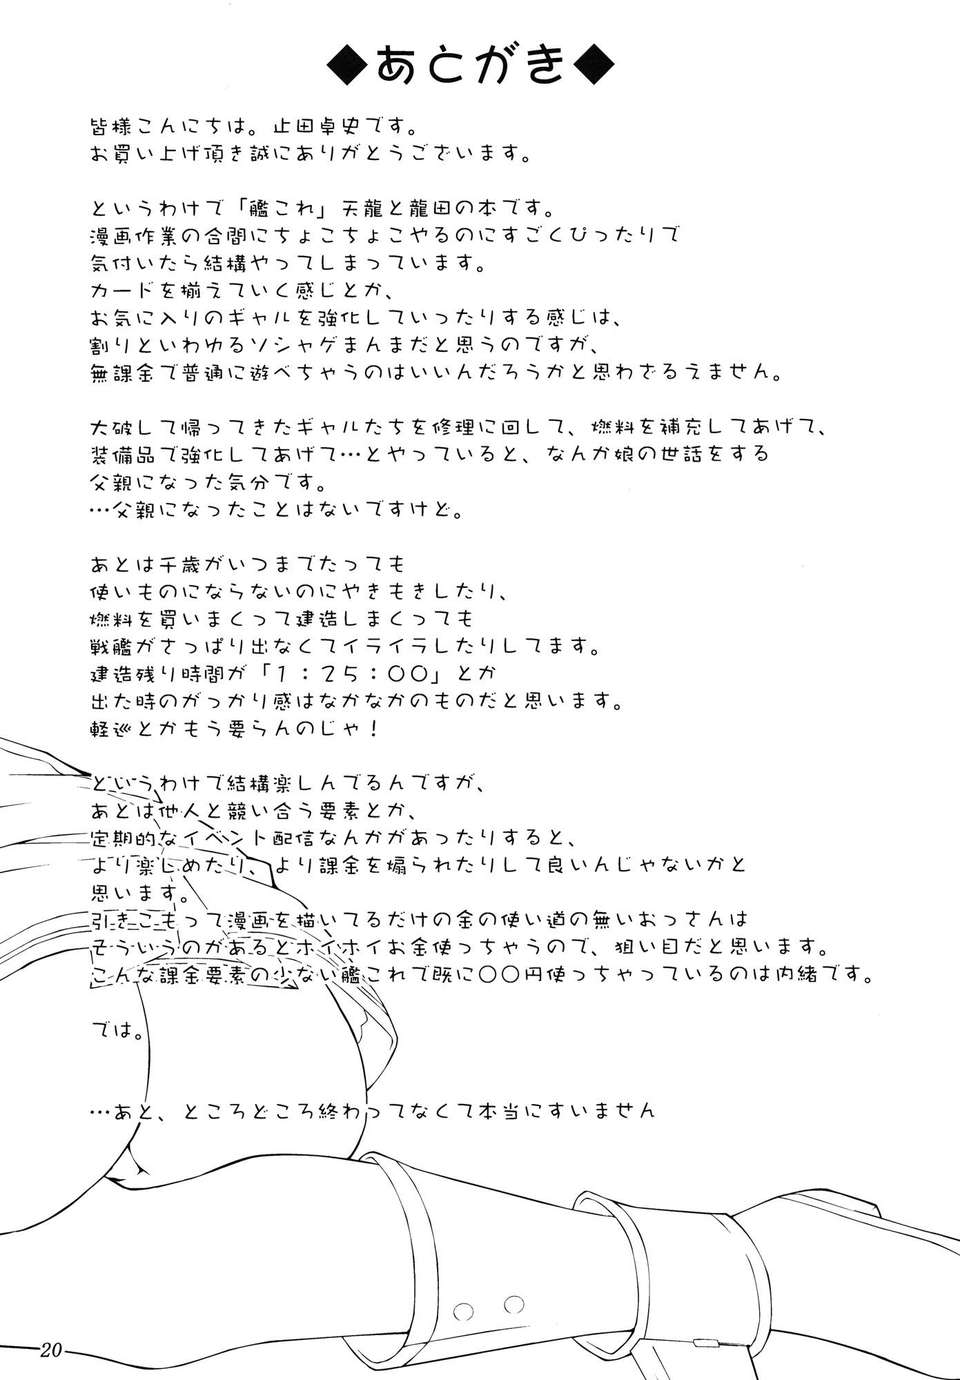 ◆あとがき◆
皆様こんにちは。止田卓史です。
お買い上げ頂き誠にありがとうございます。
というわけで「艦これ」天龍と龍田の本です。
漫画作業の合間にちょこちょこやるのにすごくぴったりで
気付いたら結構やってしまっています。
カードを揃えていく感じとか、
お気に入りのギャルを強化していったりする感じは、
割りといわゆるソシャゲまんまだと思うのですが、
無課金で普通に遊べちゃうのはいいんだろうかと思わざるえません。
大破して帰ってきたギャルたちを修理に回して、燃料を補充してあげて、
装備品で強化してあげて…とやっていると、なんか娘の世話をする
父親になった気分です。
…父親になったことはないですけど。
あとは千歳がいつまでたっても
使いものにならないのにやきもきしたり、
燃料を買いまくって建造しまくっても
戦艦がさっぱり出なくてイライラしたりしてます。
建造残り時間が「１：２５：００」とか
出た時のがっかり感はなかなかのものだと思います。
軽巡とかもう要らんのじゃ！
というわけで結構楽しんでるんですが、
あとは他人と競い合う要素とか、
定期的なイベント配信なんかがあったりすると、
より楽しめたり、より課金を煽られたりして良いんじゃないかと
思います。
引きこもって漫画を描いてるだけの金の使い道の無いおっさんは
そういうのがあるとホイホイお金使っちゃうので、狙い目だと思います。
こんな課金要素の少ない艦これで既に〇〇円使っちゃっているのは内緒です。
では。
…あと、ところどころ終わってなくて本当にすいません
20